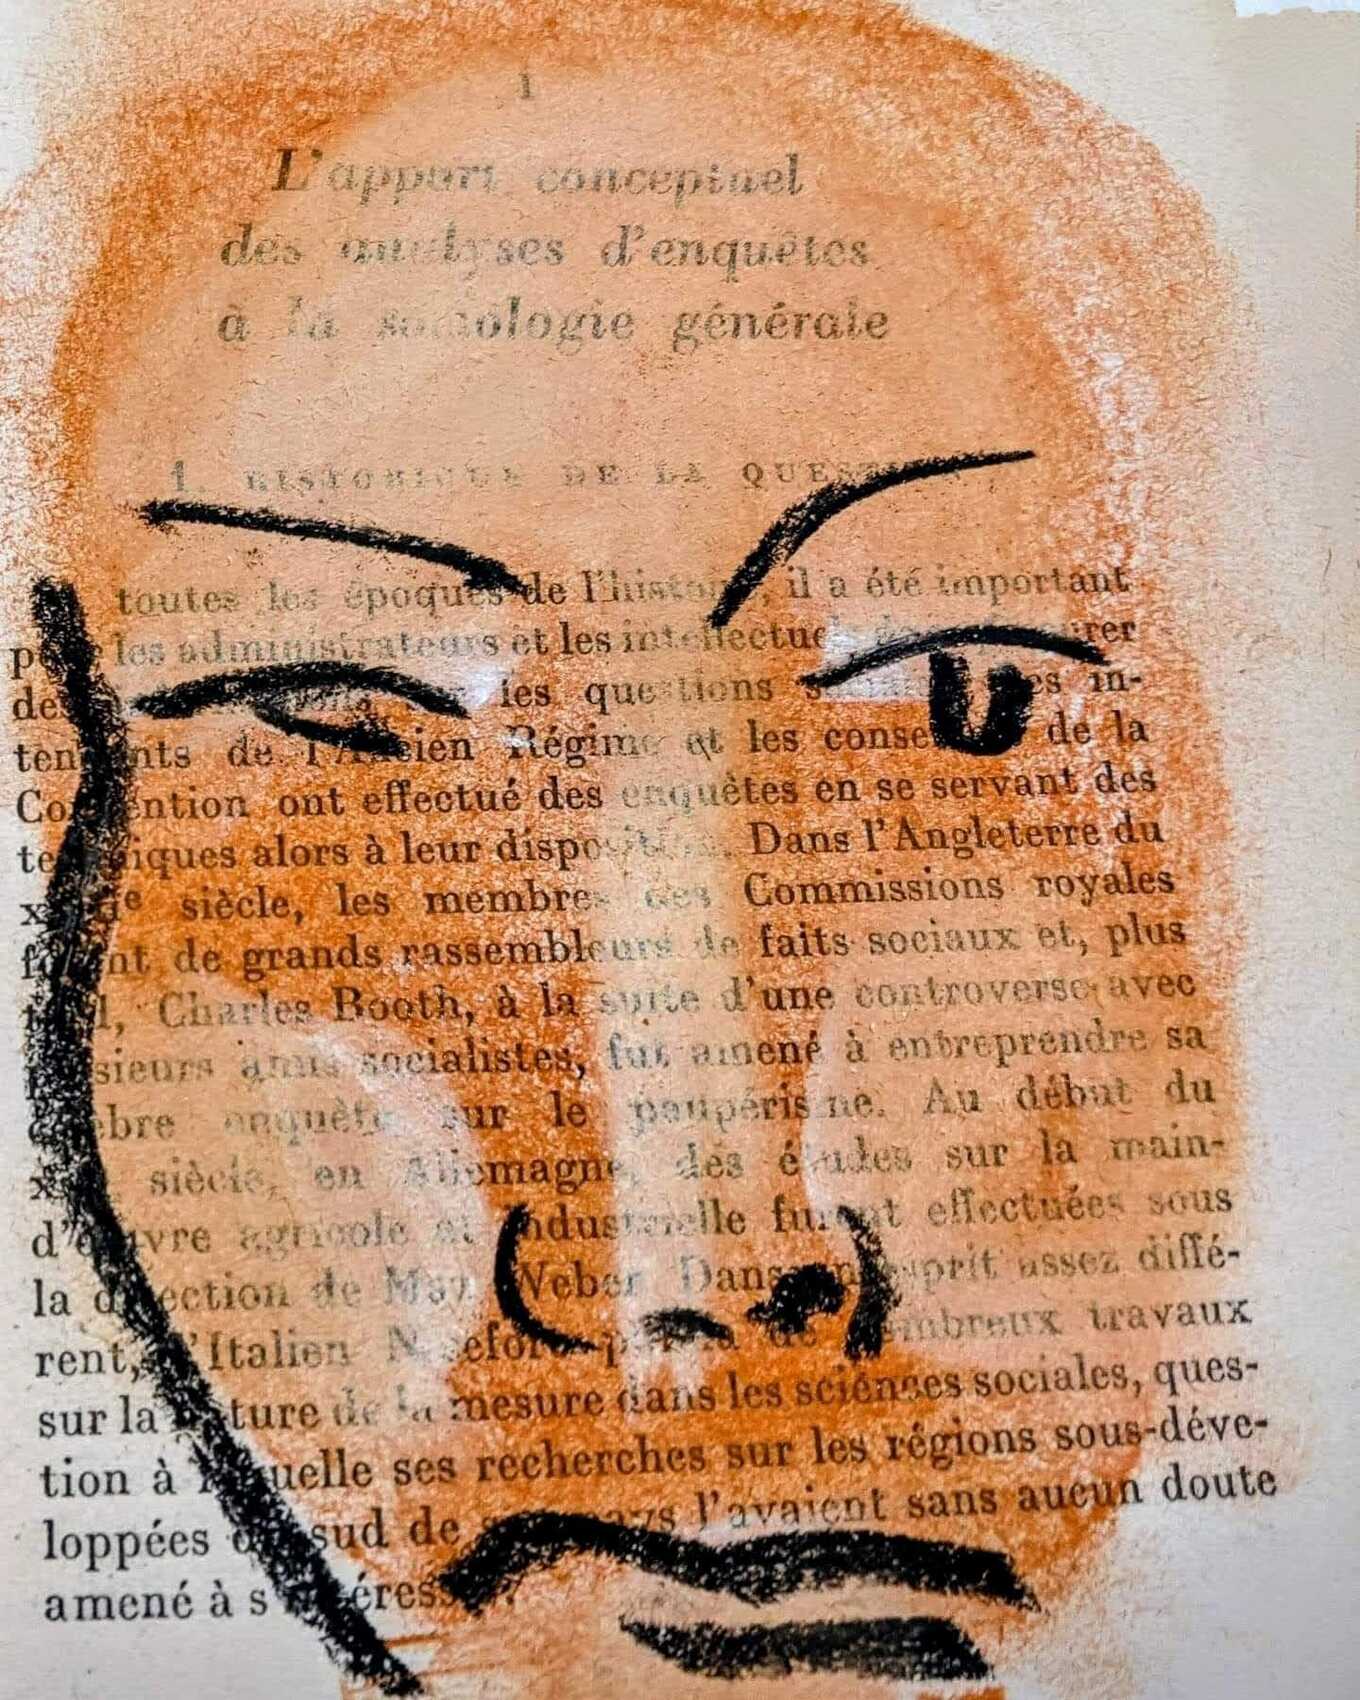 1
L'apport conceptuel
des analyses d'enquêtes
à la sociologie générale
1. HISTORIQUE DE LA QUESTION
toutes les époques de l'histoire, il a été important
les administrateurs et les intellectuels
les questions in-
de l'Ancien Régime et les conse de la
Convention ont effectué des enquêtes en se servant des
techniques alors à leur disposition. Dans l'Angleterre du
siècle, les membres des Commissions royales
furent de grands rassembleurs de faits sociaux et, plus
tard, Charles Booth, à la suite d'une controverse avec
plusieurs amis socialistes, fut amené à entreprendre sa
célèbre enquête sur le paupérisme. Au début du
siècle, en Allemagne, des études sur la main-
d'œuvre agricole et industrielle furent effectuées sous
la direction de Max Weber. Dans un esprit assez diffé-
rent, l'Italien de nombreux travaux
sur la nature de la mesure dans les sciences sociales, ques-
tion à laquelle ses recherches sur les régions sous-déve-
loppées du sud de pays l'avaient sans aucun doute
amené à s'intéresser.